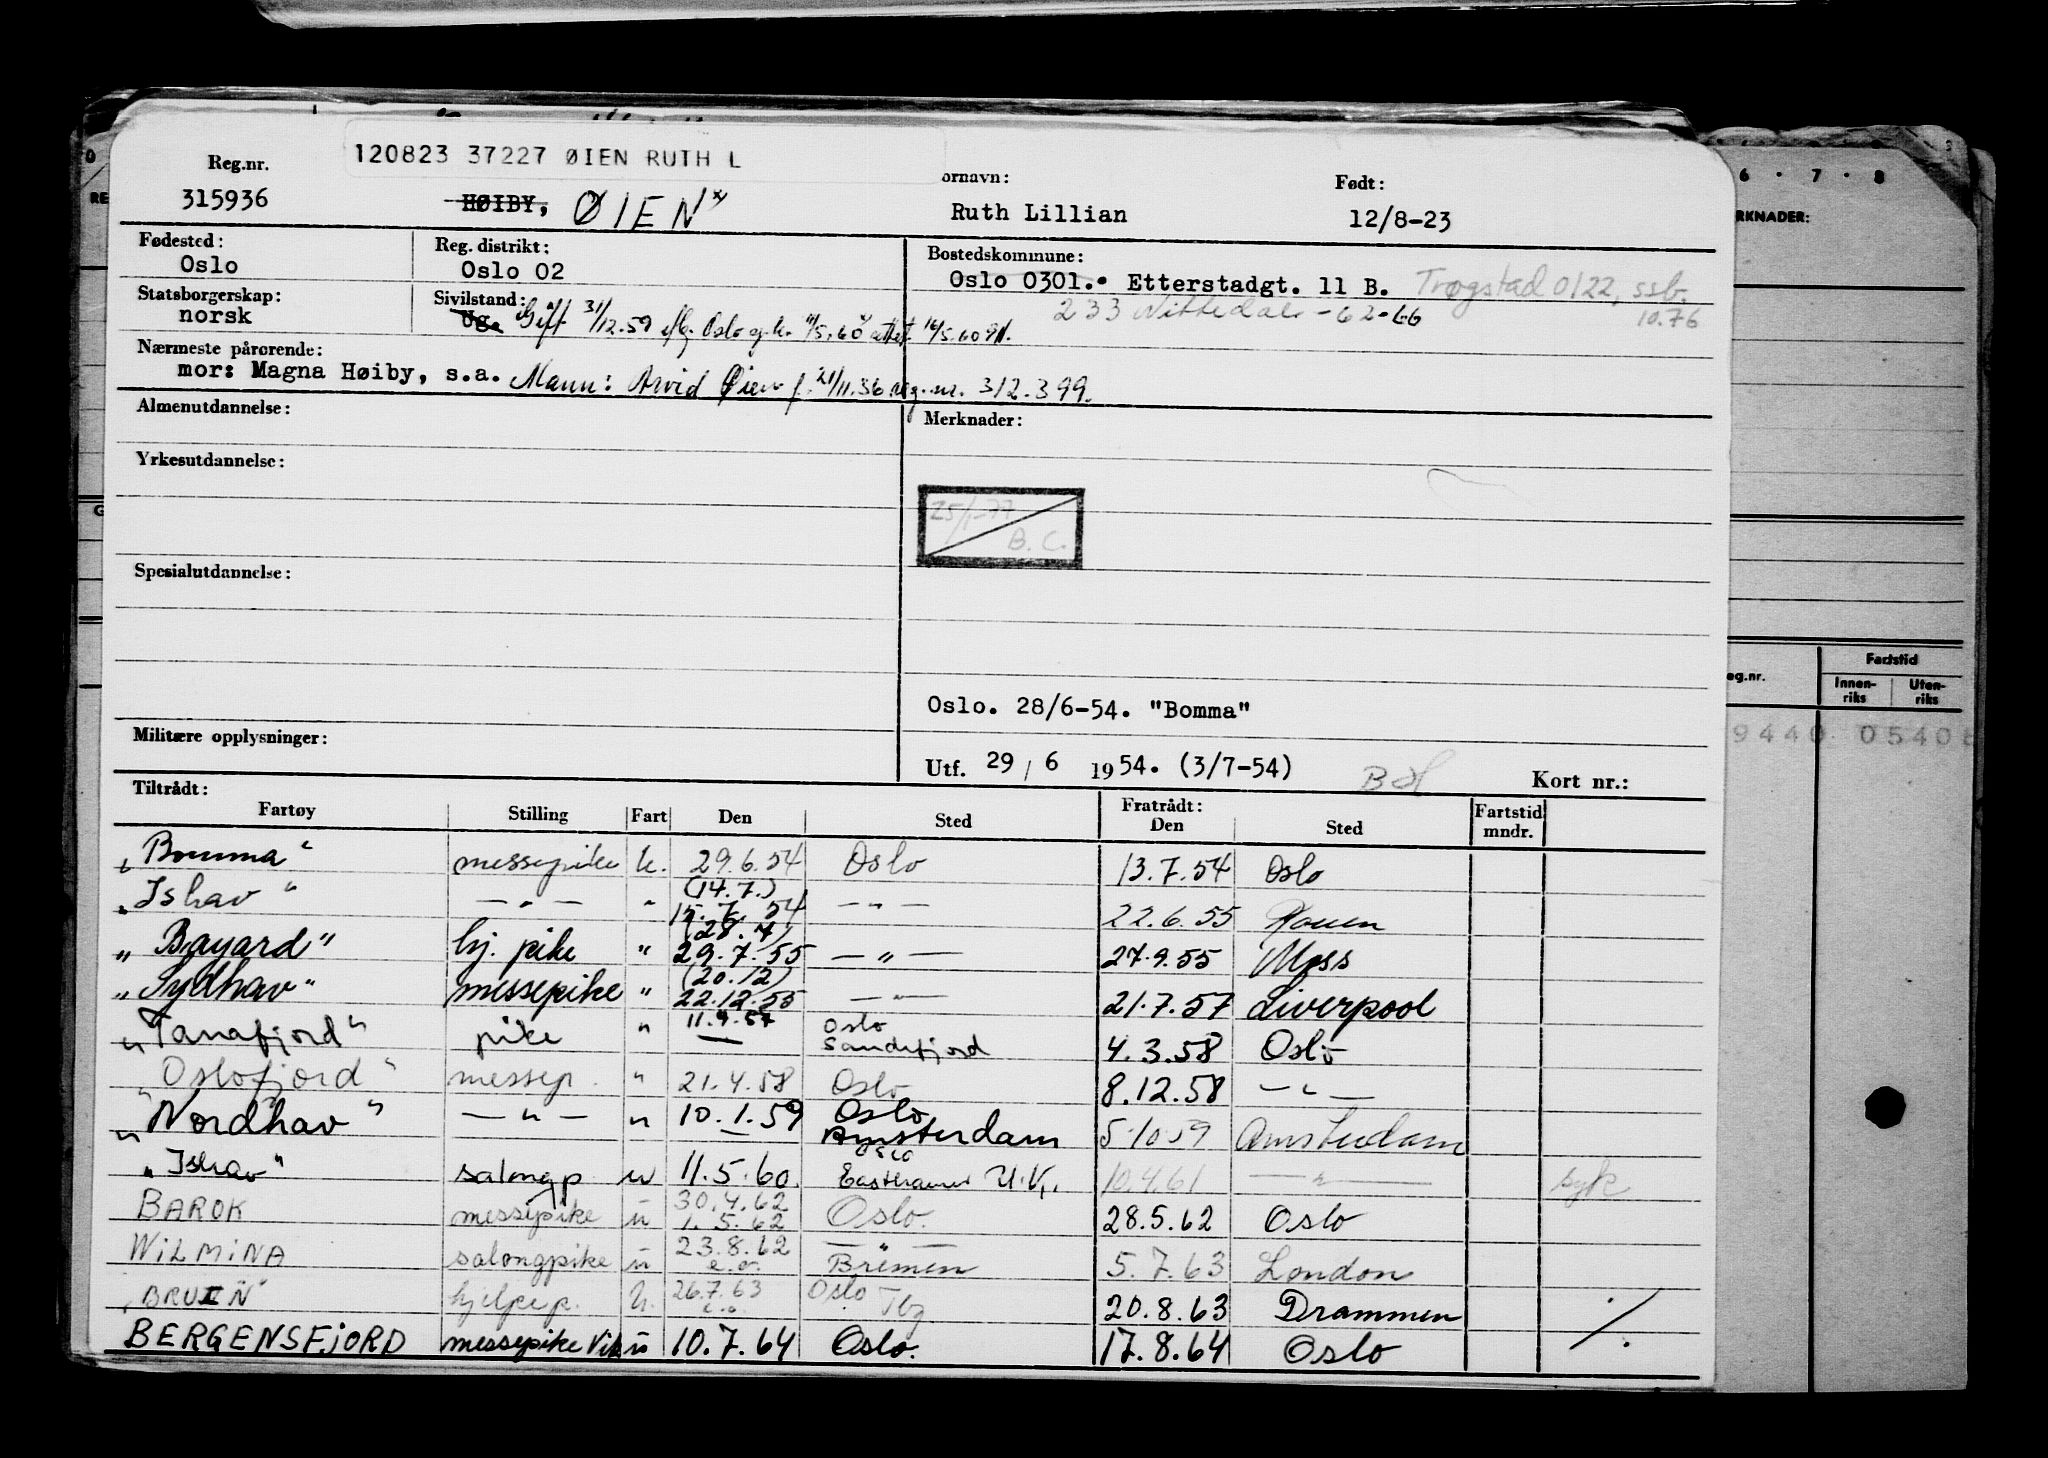 120823 37227 ØIEN RUTH L
Reg.nr. ornavn: Født:
315936 HØIBY, ØIEN Ruth Lillian 12/8-23
Fødested: Reg. distrikt: Bostedskommune:
Oslo Oslo 02 Oslo 0301. Etterstadgt. 11 B. Trøgstad 0122, ssb. 10.76
Statsborgerskap: Sivilstand: 233 Nittedal - 62-66
norsk Ug. Gift 31/12.59 Oslo 11/5.60 attest. 16/5.60
Nærmeste pårørende:
mor: Magna Høiby, s.a. Mann: Arvid Øien f. 21/11.36 reg.nr. 312.399.
Almenutdannelse: Merknader:
Yrkesutdannelse:
25/1-77
B. C.
Spesialutdannelse:
Oslo. 28/6-54. "Bomma"
Militære opplysninger:
Utf. 29 / 6 1954. (3/7-54) Kort nr.:
Tiltrådt: Fratrådt:
Fartøy Stilling Fart Den Sted Den Sted Fartstid mndr.
"Bomma" messepike u. 29.6.54 Oslo 13.7.54 Oslo
"Ishav" — " — " (14.7.) 15.7.54 — " — 22.6.55 Rouen
"Bayard" hj. pike " (28.7) 29.7.55 — " — 27.9.55 Moss
"Sydhav" messepike " (20.12) 22.12.55 — " — 21.7.57 Liverpool
"Tanafjord" pike " 11.9.57 Oslo Sandefjord 4.3.58 Oslo
"Oslofjord" messep. " 21.4.58 Oslo 8.12.58 — " —
"Nordhav" — " — " 10.1.59 Oslo Amsterdam 5.10.59 Amsterdam
"Ishav" salongp u 11.5.60. Oslo Eastham 10.4.61 — " — syk
BAROK messepike u 30.4.62 1.5.62 Oslo. 28.5.62 Oslo
WILMINA salongpike u 23.8.62 e.o. — " — Bremen 5.7.63 London
"BRUIN" hjelpep. u. 26.7.63 e.o. Oslo Tbg 20.8.63 Drammen
BERGENSFJORD messepike Vik u 10.7.64 Oslo. 17.8.64 Oslo
6 . 7 . 8
RKNADER:
eg.nr. Fartstid
Innenriks Utenriks
9440 0540